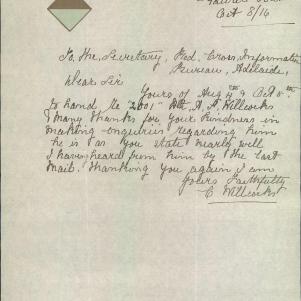 Oct 8/16
To the Secretary, Red Cross Information
Bureau, Adelaide,
Dear Sir
Yours of Aug 4th & Oct 5th
to hand Re "2001" A. A. Willcocks
Many thanks for your kindness in
making enquiries regarding him
he is as you state nearly well
I have heard from him by the last
mail. Thanking you again I am
Yours Faithfully
C Willcocks